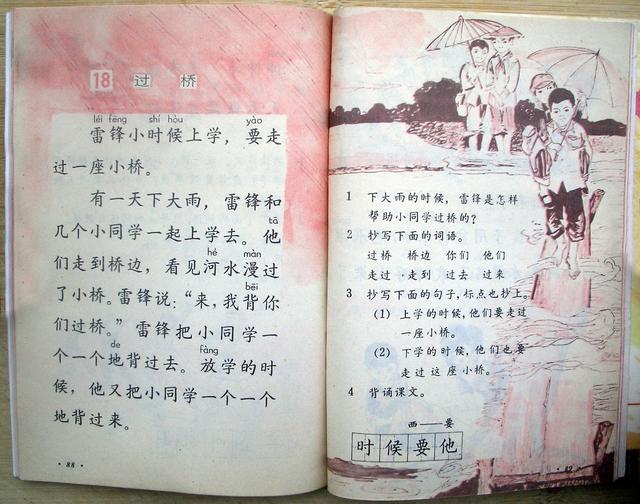 18 过桥
léi fēng shí hòu yào
雷锋小时候上学，要走
过一座小桥。
有一天下大雨，雷锋和
tā
几个小同学一起上学去。他
hé màn
们走到桥边，看见河水漫过
bēi
了小桥。雷锋说：“来，我背你
们过桥。”雷锋把小同学一
de fàng
个一个地背过去。放学的时
候，他又把小同学一个一个
地背过来。
·88·
1 下大雨的时候，雷锋是怎样
帮助小同学过桥的？
2 抄写下面的词语。
过桥 桥边 你们 他们
走过 走到 过去 过来
3 抄写下面的句子，标点也抄上。
(1) 上学的时候，他们要走过
一座小桥。
(2) 下学的时候，他们也要
走过这座小桥。
4 背诵课文。
西——要
时候要他
·89·